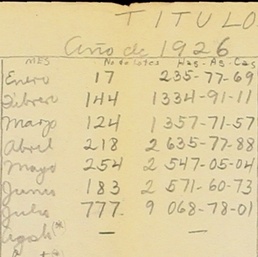 TITULO
Año de 1926
MES No de lotes Has-As-Cas
Enero 17 235-77-69
Febrero 144 1334-91-11
Marzo 124 1357-71-57
Abril 218 2635-77-88
Mayo 254 2547-05-04
Junio 183 2571-60-73
Julio 777 9068-78-01
Agosto(*) — —